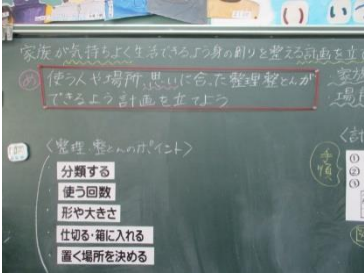 家族が気持ちよく生活できるよう身の回りを整える計画を立
め 使う人や場所、思いに合った整理整とんが
できるよう計画を立てよう
＜整理・整とんのポイント＞
分類する
使う回数
形や大きさ
仕切る・箱に入れる
置く場所を決める
手順
①
②
③